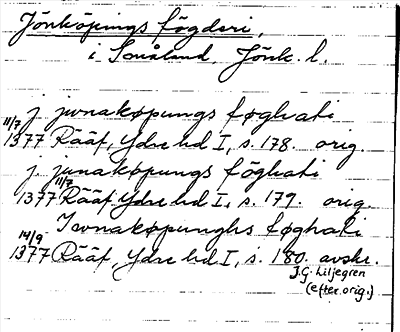 Jönköpings fögderi,
i Småland, Jönk. l.
j junakøpungs føghati
11/7 1377 Rääf, Ydre hd I, s. 178. orig.
j. junakøpungs föghati
1377 11/7 Rääf, Ydre hd I, s. 179. orig.
Iwnakøpunghs føghati
14/9 1377 Rääf, Ydre hd I, s. 180. avskr.
J.G. Liljegren
(efter orig.)